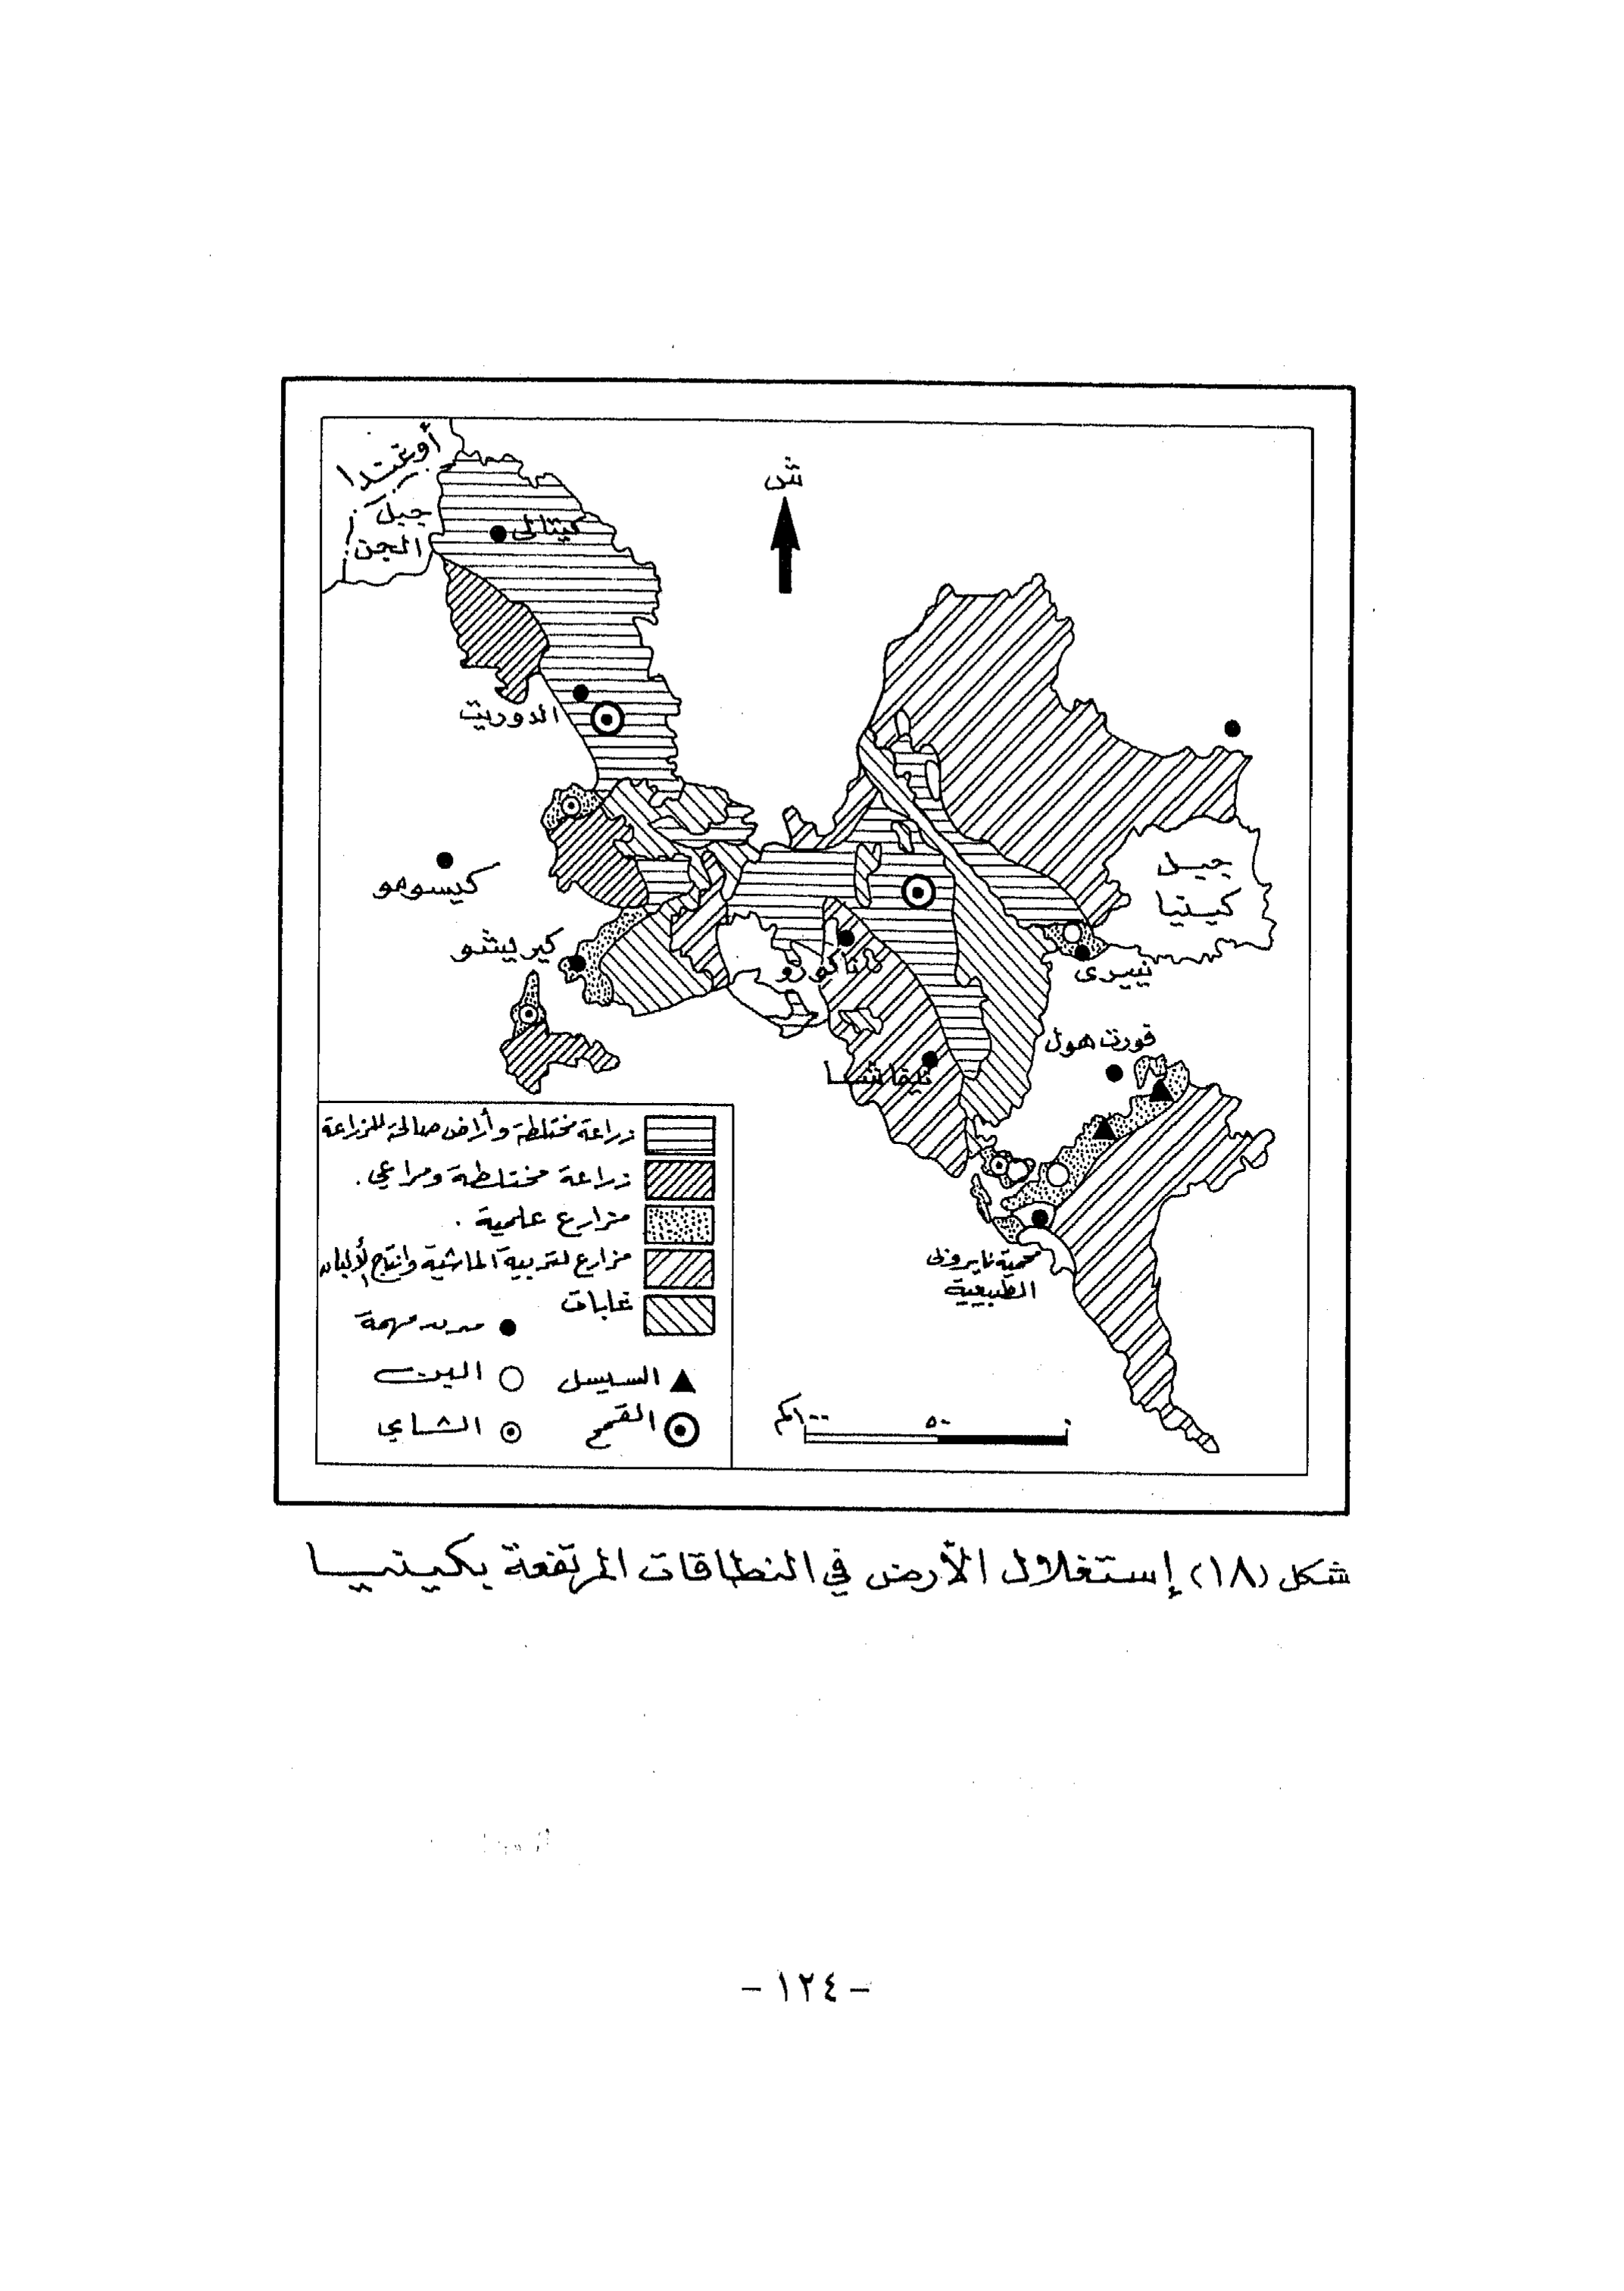 أوغندا
جبل
الجن
كيتالى
ش
الدوريت
كيسومو
كيريشو
ناكورو
نيفاشا
جبل
كينيا
نييرى
فورت هول
محمية نايروبى
الطبيعية
زراعة مختلطة وأراض صالحة للزراعة
زراعة مختلطة ومراعي.
مزارع علمية.
مزارع لتربية الماشية وانتاج الألبان
غابات
مدن مهمة
السيسل
البن
القمح
الشاي
١٠٠كم ٥٠ ٠
شكل (١٨) إستغلال الأرض في النطاقات المرتفعة بكينيا
- ١٢٤ -